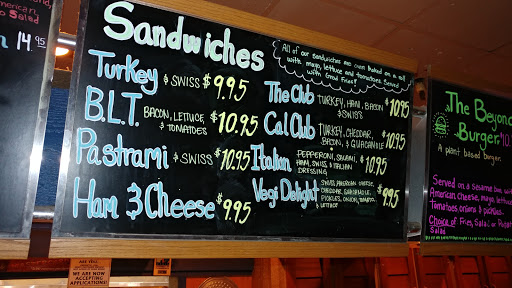 merican,
Salad
14.95
Sandwiches
All of our sandwiches are oven baked on a roll
with mayo, lettuce and tomatoes. Served
with Great Fries!
Turkey & SWISS $9.95
B.L.T. BACON, LETTUCE, & TOMATOES $10.95
Pastrami & SWISS $10.95
Ham & Cheese $9.95
The Club TURKEY, HAM, BACON & SWISS $10.95
Cal Club TURKEY, CHEDDAR, BACON, & GUACAMOLE $10.95
Italian PEPPERONI, SALAMI, HAM, SWISS, & ITALIAN DRESSING $10.95
Vegi Delight SWISS, AMERICAN CHEESE, CHEDDAR, PICKLES, ONION, TOMATO, LETTUCE $9.95
The Beyond
Burger
A plant based burger.
Served on a sesame bun with
American cheese, mayo, lettuce
tomatoes onions & pickles.
Choice of Fries, Salad or
Salad
WE ARE NOW
ACCEPTING
APPLICATIONS!